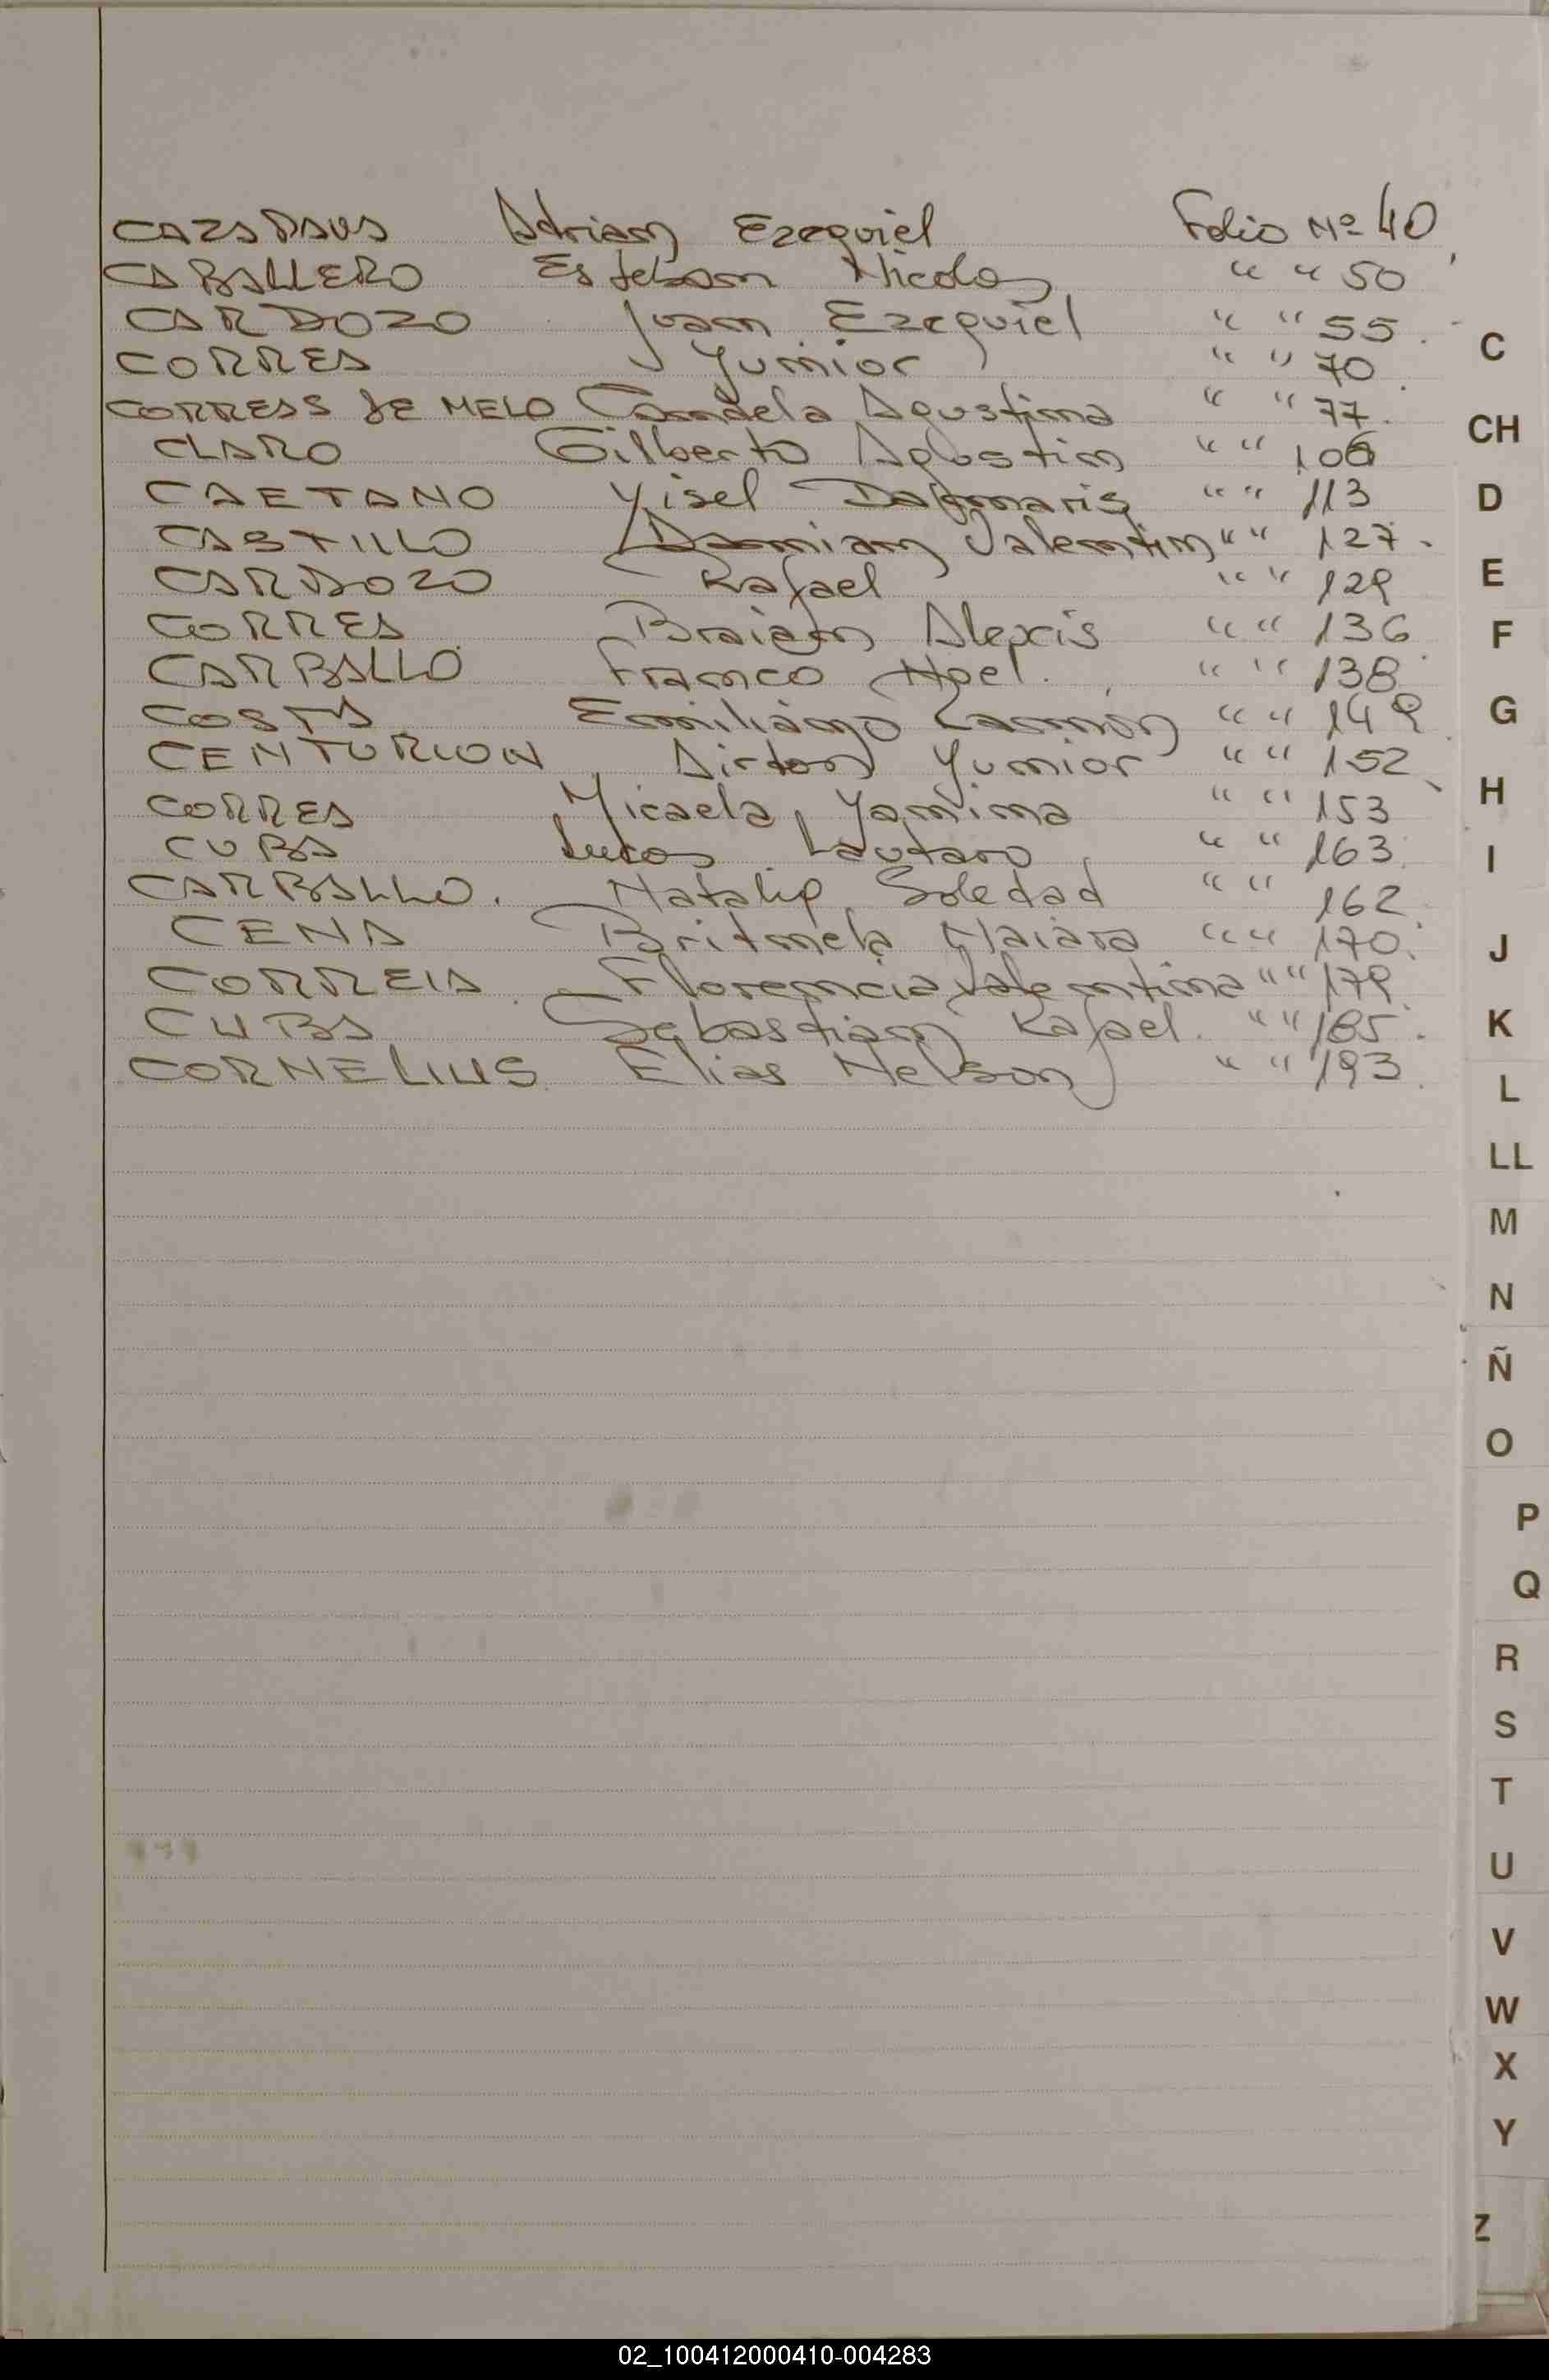 CAZADAUS Adrian Ezequiel Folio Nº 40
CABALLERO Esteban Nicolas " " 50
CARDOZO Juan Ezequiel " " 55
CORREA Yunior " " 70
CORREAS DE MELO Candela Agustina " " 77
CLARO Gilberto Agustin " " 106
CAETANO Yisel Damaris " " 113
CASTILLO Damian Valentin " " 127
CARDOZO Rafael " " 129
CORREA Braian Alexis " " 136
CARBALLO Franco Noel. " " 138
COSTA Emiliano Ramon " " 149
CENTURION Airton Yunior " " 152
CORREA Micaela Yanina " " 153
CUBA Lucas Lautaro " " 163
CARBALLO. Natalia Soledad " " 162
CENA Britnela Naiara " " 170
CORREIA Florencia Valentina " " 179
CUBA Sebastian Rafael. " " 185
CORNELIUS Elias Nelson " " 193
C
CH
D
E
F
G
H
I
J
K
L
LL
M
N
Ñ
O
P
Q
R
S
T
U
V
W
X
Y
Z
02_100412000410-004283